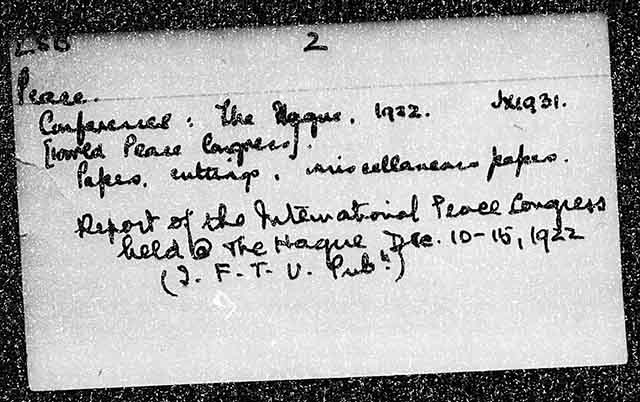 2
Peace.
Conference: The Hague, 1922.
[World Peace Congress].
Papers, cuttings, miscellaneous papers.
Report of the International Peace Congress
held @ The Hague Dec. 10-15, 1922
(I. F. T. U. Pubn.)